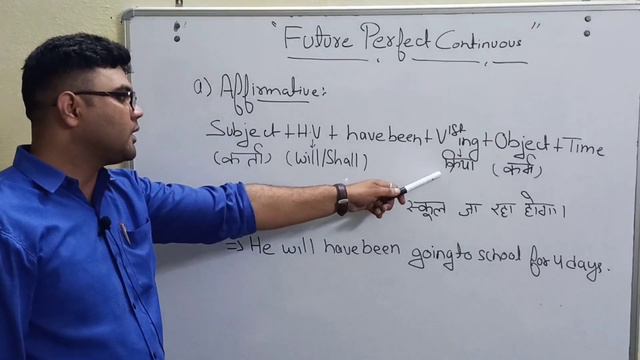 "Future Perfect Continuous"
a) Affirmative:
Subject + H.V + have been + V1st ing + Object + Time
(कर्ता) (Will/Shall) क्रिया (कर्म)
स्कूल जा रहा होगा।
⇒ He will have been going to school for 4 days.